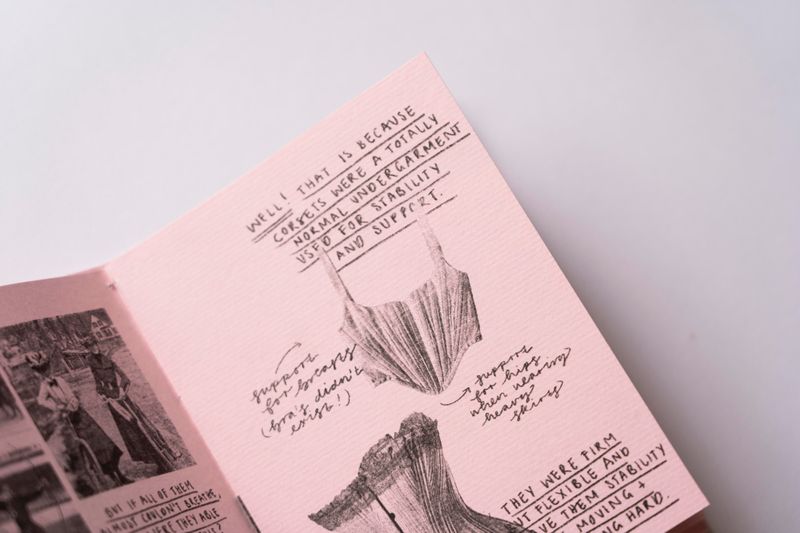 BUT IF ALL OF THEM
ALMOST COULDN'T BREATHE,
WERE THEY ABLE
WELL! THAT IS BECAUSE
CORSETS WERE A TOTALLY
NORMAL UNDERGARMENT
USED FOR STABILITY
AND SUPPORT.
support
for breasts
(bra's didn't
exist!)
support
for hips
when wearing
heavy
skirts
THEY WERE FIRM
BUT FLEXIBLE AND
THEM STABILITY
MOVING +
HARD.